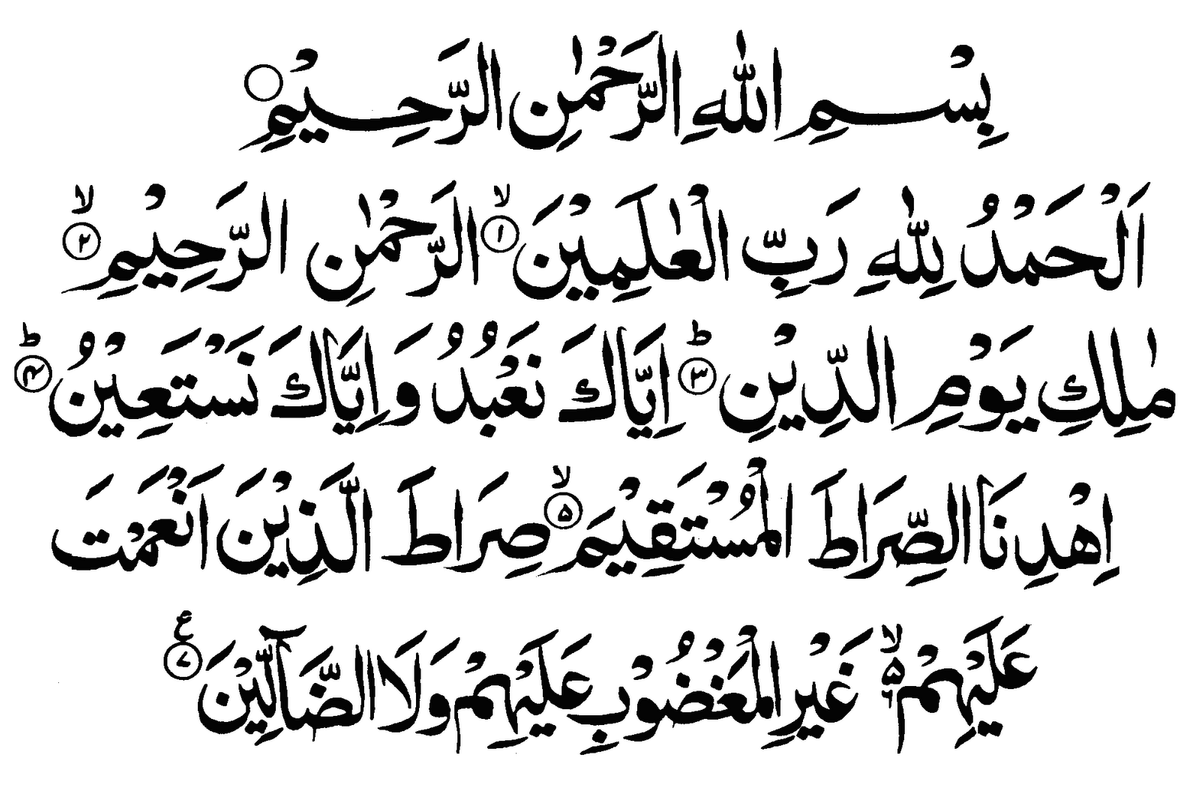 بِسْمِ اللّٰهِ الرَّحْمٰنِ الرَّحِيْمِ ○
اَلْحَمْدُ لِلّٰهِ رَبِّ الْعٰلَمِيْنَ ۙ﴿۱﴾ الرَّحْمٰنِ الرَّحِيْمِ ۙ﴿۲﴾
مٰلِكِ يَوْمِ الدِّيْنِ ؕ﴿۳﴾ اِيَّاكَ نَعْبُدُ وَاِيَّاكَ نَسْتَعِيْنُ ؕ﴿۴﴾
اِهْدِنَا الصِّرَاطَ الْمُسْتَقِيْمَ ۙ﴿۵﴾ صِرَاطَ الَّذِيْنَ اَنْعَمْتَ
عَلَيْهِمْ ۙ۬ۦ غَيْرِ الْمَغْضُوْبِ عَلَيْهِمْ وَلَا الضَّآلِّيْنَ ﴿۷﴾ ع